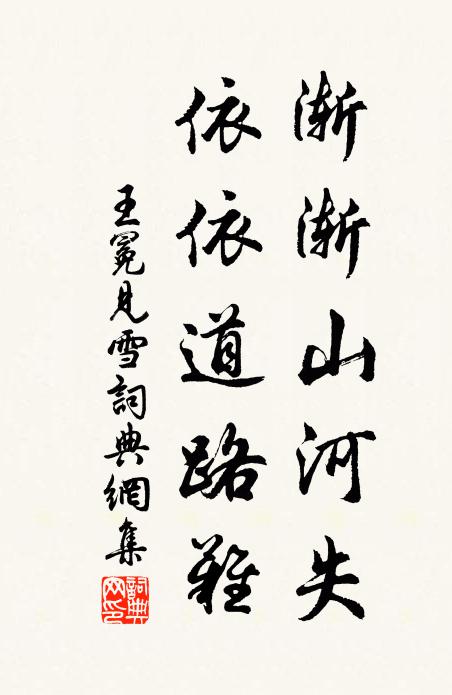 渐渐山河失
依依道路難
王冕見雪詞典網集
詞典網印